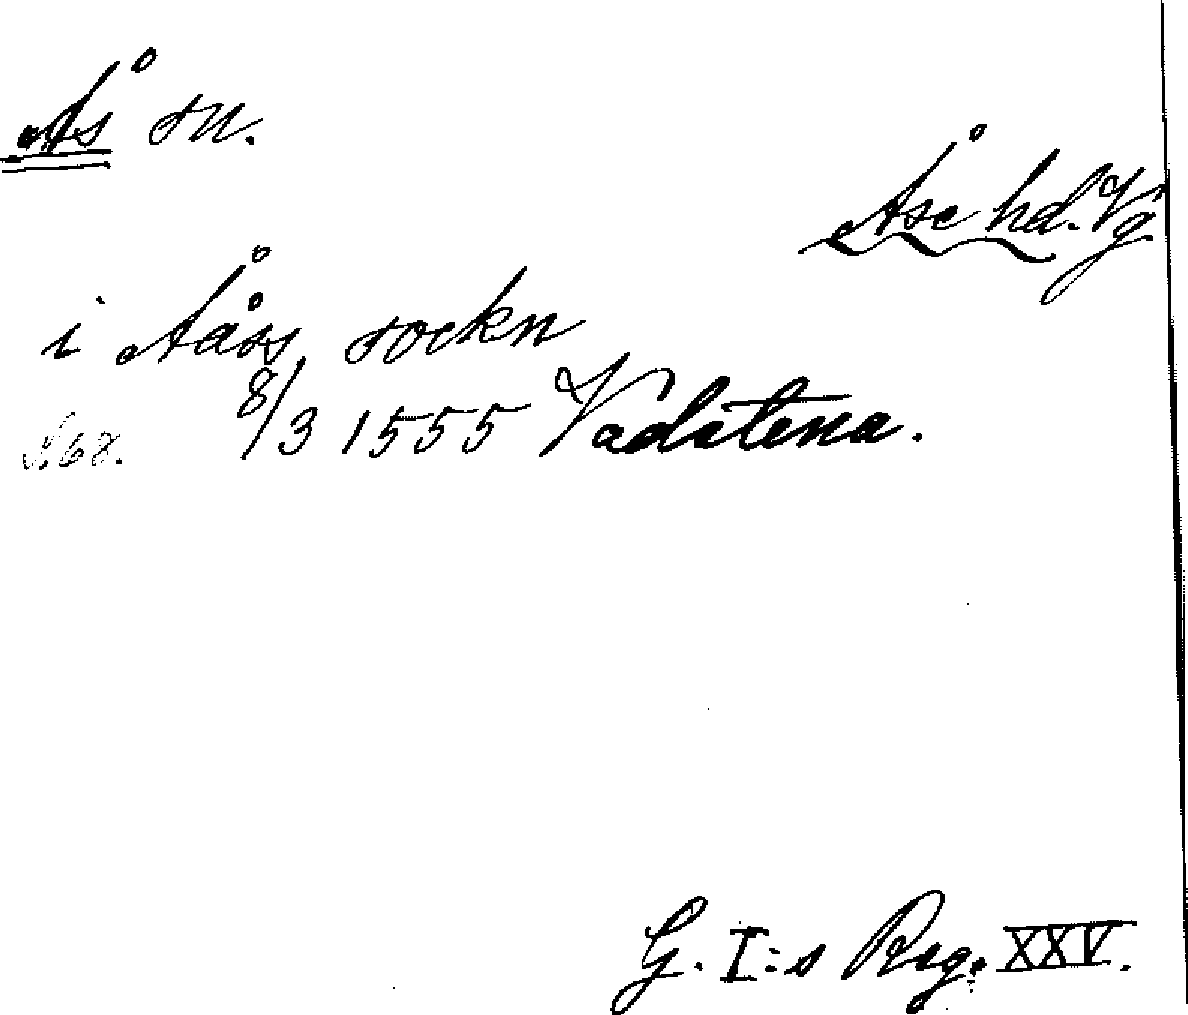 Ås sn.
Åse hd. Vg
i Ååss sockn
S. 68. 8/3 1555 Vadstena.
G. I:s Reg. XXV.